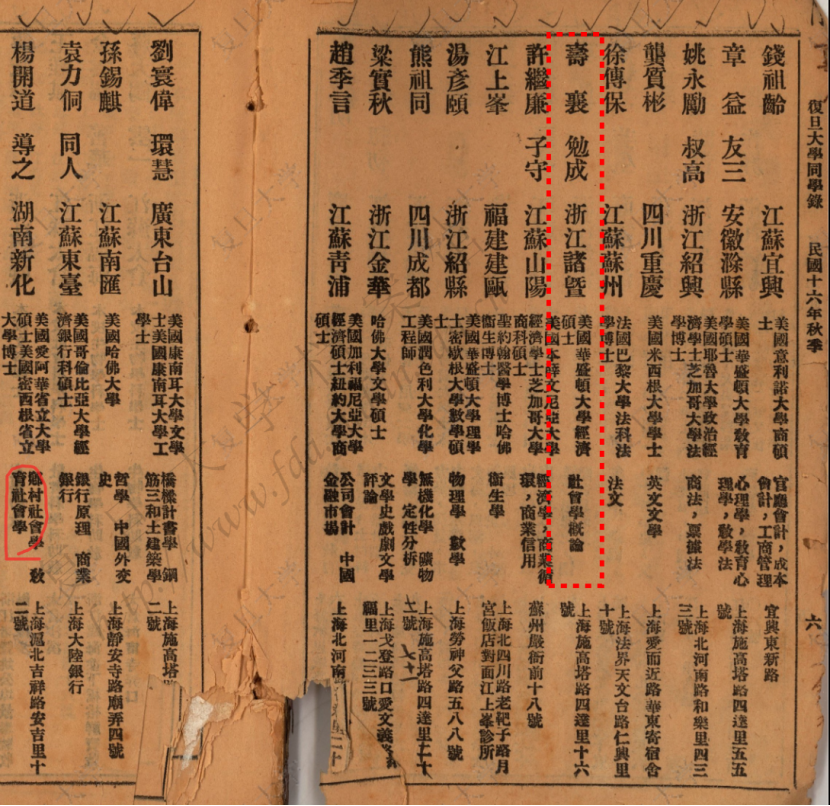 復旦大學同學錄 民國十六年秋季 六
錢祖齡 江蘇宜興
美國意利諾大學商碩
士
官廳會計，成本
會計，工商管理
宜興東新路
章 益 友三 安徽滁縣
美國華盛頓大學敎育
學碩士
心理學，敎育心
理學，敎學法
上海施高塔路四達里五五
號
姚永勵 叔高 浙江紹興
美國耶魯大學政治經
濟學士芝加哥大學法
學博士
商法，票據法
上海北河南路和樂里四三
三號
龔質彬 四川重慶
美國米西根大學學士
英文文學
上海愛而近路華東寄宿舍
徐傳保 江蘇蘇州
法國巴黎大學法科法
學博士
法文
上海法界天文台路仁興里
十號
壽 襄 勉成 浙江諸暨
美國華盛頓大學經濟
碩士
社會學概論
上海施高塔路四達里十六
號
許繼廉 子守 江蘇山陽
美國本薛文尼亞大學
經濟學士芝加哥大學
商科碩士
經濟學，商業循
環，商業信用
蘇州嚴衙前十八號
江上峯 福建建甌
聖約翰醫學博士哈佛
衞生博士
衞生學
上海北四川路老靶子路月
宮飯店對面江上峯診所
湯彥頤 浙江紹縣
美國華盛頓大學理學
士密歇根大學數學碩
士
物理學 數學
上海勞神父路五八八號
熊祖同 四川成都
美國潤色利大學化學
工程師
無機化學 礦物
學 定性分析
上海施高塔路四達里七十
一號
梁實秋 浙江金華
哈佛大學文學碩士
文學史戲劇文學
評論
上海戈登路口愛文義路
福里一二三三號
趙季言 江蘇靑浦
美國加利福尼亞大學
經濟碩士紐約大學商
碩士
公司會計 中國
金融市場
上海北河南
劉寰偉 環慧 廣東台山
美國康南耳大學文學
士美國康南耳大學工
學士
橋樑計畫學 鋼
筋三和土建築學
上海施高塔路
二號
孫錫麒 江蘇南匯
美國哈佛大學
哲學 中國外交
史
上海靜安寺路廟弄四號
袁力侗 同人 江蘇東臺
美國哥倫比亞大學經
濟銀行科碩士
銀行原理 商業
銀行
上海大陸銀行
楊開道 導之 湖南新化
美國愛阿華省立大學
碩士美國密西根省立
大學博士
鄕村社會學 敎
育社會學
上海滬北吉祥路安吉里十
二號